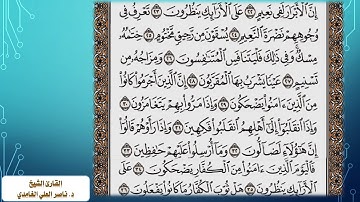 إِنَّ ٱلْأَبْرَارَ لَفِى نَعِيمٍ ٢٢ عَلَى ٱلْأَرَآئِكِ يَنظُرُونَ ٢٣ تَعْرِفُ فِى
وُجُوهِهِمْ نَضْرَةَ ٱلنَّعِيمِ ٢٤ يُسْقَوْنَ مِن رَّحِيقٍ مَّخْتُومٍ ٢٥ خِتَٰمُهُۥ
مِسْكٌ وَفِى ذَٰلِكَ فَلْيَتَنَافَسِ ٱلْمُتَنَٰفِسُونَ ٢٦ وَمِزَاجُهُۥ مِن
تَسْنِيمٍ ٢٧ عَيْنًا يَشْرَبُ بِهَا ٱلْمُقَرَّبُونَ ٢٨ إِنَّ ٱلَّذِينَ أَجْرَمُوا۟ كَانُوا۟
مِنَ ٱلَّذِينَ ءَامَنُوا۟ يَضْحَكُونَ ٢٩ وَإِذَا مَرُّوا۟ بِهِمْ يَتَغَامَزُونَ ٣٠
وَإِذَا ٱنقَلَبُوٓا۟ إِلَىٰٓ أَهْلِهِمُ ٱنقَلَبُوا۟ فَكِهِينَ ٣١ وَإِذَا رَأَوْهُمْ قَالُوٓا۟
إِنَّ هَٰٓؤُلَآءِ لَضَآلُّونَ ٣٢ وَمَآ أُرْسِلُوا۟ عَلَيْهِمْ حَٰفِظِينَ ٣٣
فَٱلْيَوْمَ ٱلَّذِينَ ءَامَنُوا۟ مِنَ ٱلْكُفَّارِ يَضْحَكُونَ ٣٤ عَلَى
ٱلْأَرَآئِكِ يَنظُرُونَ ٣٥ هَلْ ثُوِّبَ ٱلْكُفَّارُ مَا كَانُوا۟ يَفْعَلُونَ ٣٦
القارئ الشيخ
د. ناصر العلي الغامدي